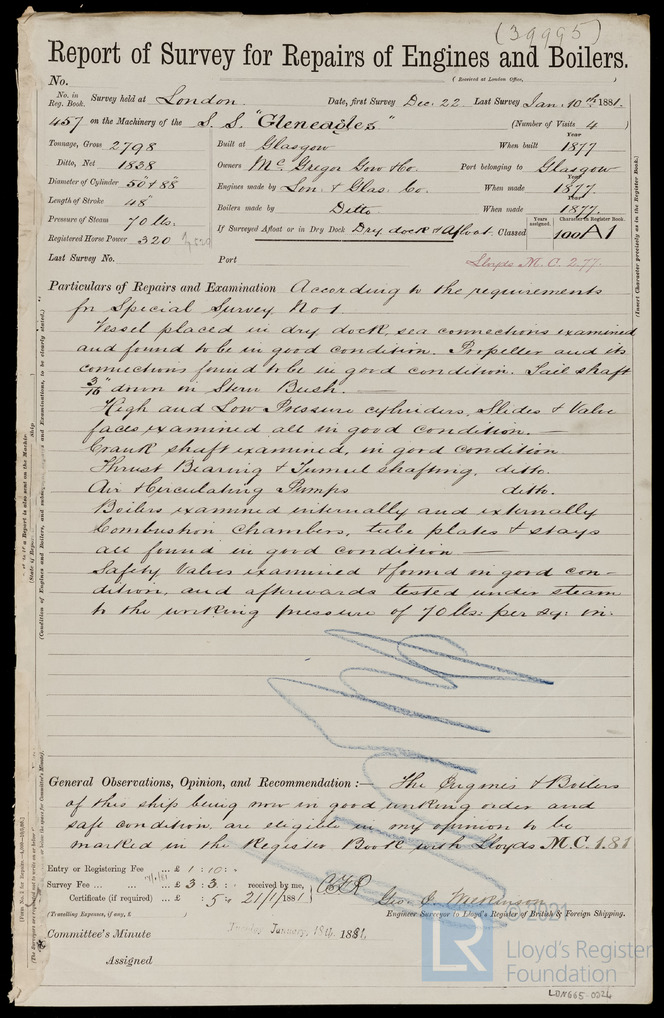 (39995)
Report of Survey for Repairs of Engines and Boilers.
No.
(Received at London Office, )
No. in Reg. Book. Survey held at London Date, first Survey Dec. 22 Last Survey Jan. 10th 1881.
457 on the Machinery of the S.S. "Gleneagles" (Number of Visits 4)
Tonnage, Gross 2798 Built at Glasgow When built Year 1877
Ditto, Net 1838 Owners McGregor Gow & Co. Port belonging to Glasgow
Diameter of Cylinder 50" & 88" Engines made by Lon. & Glas. Co. When made Year 1877.
Length of Stroke 48" Boilers made by Ditto When made Year 1877.
Pressure of Steam 70 lbs. If Surveyed Afloat or in Dry Dock Dry dock & Afloat. Classed Years assigned. Character in Register Book. 100 A1
Registered Horse Power 320
Last Survey No. Port Lloyds M.C. 2.77.
Particulars of Repairs and Examination According to the requirements
for Special Survey No 1
Vessel placed in dry dock, sea connections examined
and found to be in good condition. Propeller and its
connections found to be in good condition. Tail shaft
3/16" down in Stern Bush.
High and Low Pressure cylinders, Slides & Valve
faces examined all in good condition.
Crank shaft examined, in good condition
Thrust Bearing & Tunnel shafting, ditto.
Air & Circulating Pumps ditto.
Boilers examined internally and externally
Combustion chambers, tube plates & stays
all found in good condition
Safety Valves examined & found in good con-
dition, and afterwards tested under steam
to the working pressure of 70 lbs: per sq: in.
General Observations, Opinion, and Recommendation :— The Engines & Boilers
of this ship being now in good working order and
safe condition, are eligible in my opinion to be
marked in the Register Book with Lloyds M.C. 1.81
Entry or Registering Fee ... £ 1 : 10 :
Survey Fee ... £ 3 : 3 : received by me,
Certificate (if required) ... £ : 5 : 21/1/1881
(Travelling Expenses, if any, £ )
Geo.
Engineer Surveyor to Lloyd's Register of British & Foreign Shipping.
Committee's Minute Tuesday January 18th 1881.
Assigned
© 2021
LR
Lloyd's Register
Foundation
LDN665-0024